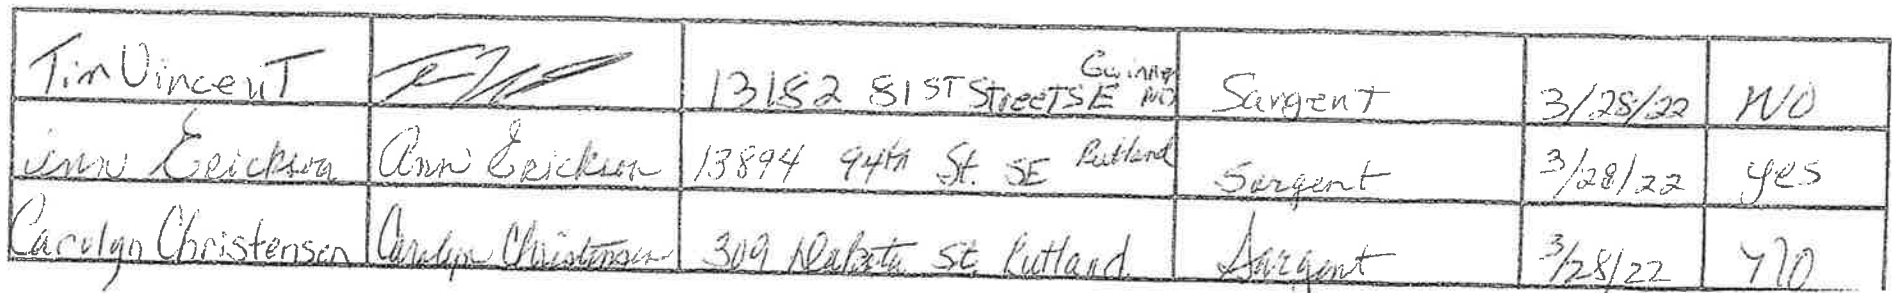 Tim Vincent 13152 81ST Street SE Gwinner ND Sargent 3/28/22 NO
Ann Erickson Ann Erickson 13894 94th St. SE Rutland Sargent 3/28/22 yes
Carolyn Christensen Carolyn Christensen 309 Dakota St. Rutland Sargent 3/28/22 no